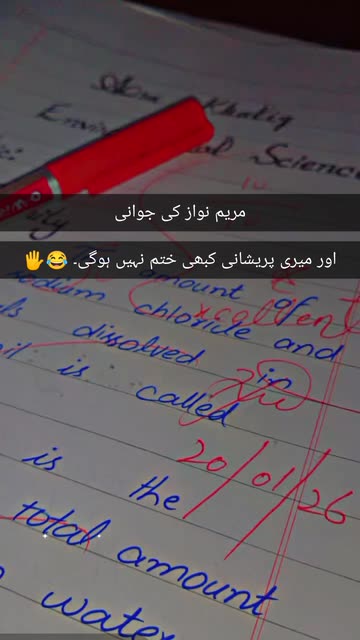 Khaliq
Science
مریم نواز کی جوانی
اور میری پریشانی کبھی ختم نہیں ہوگی۔ 😂🖐
amount of
sodium chloride and
dissolved in
soil is called
20/01/26
is the
total amount
water